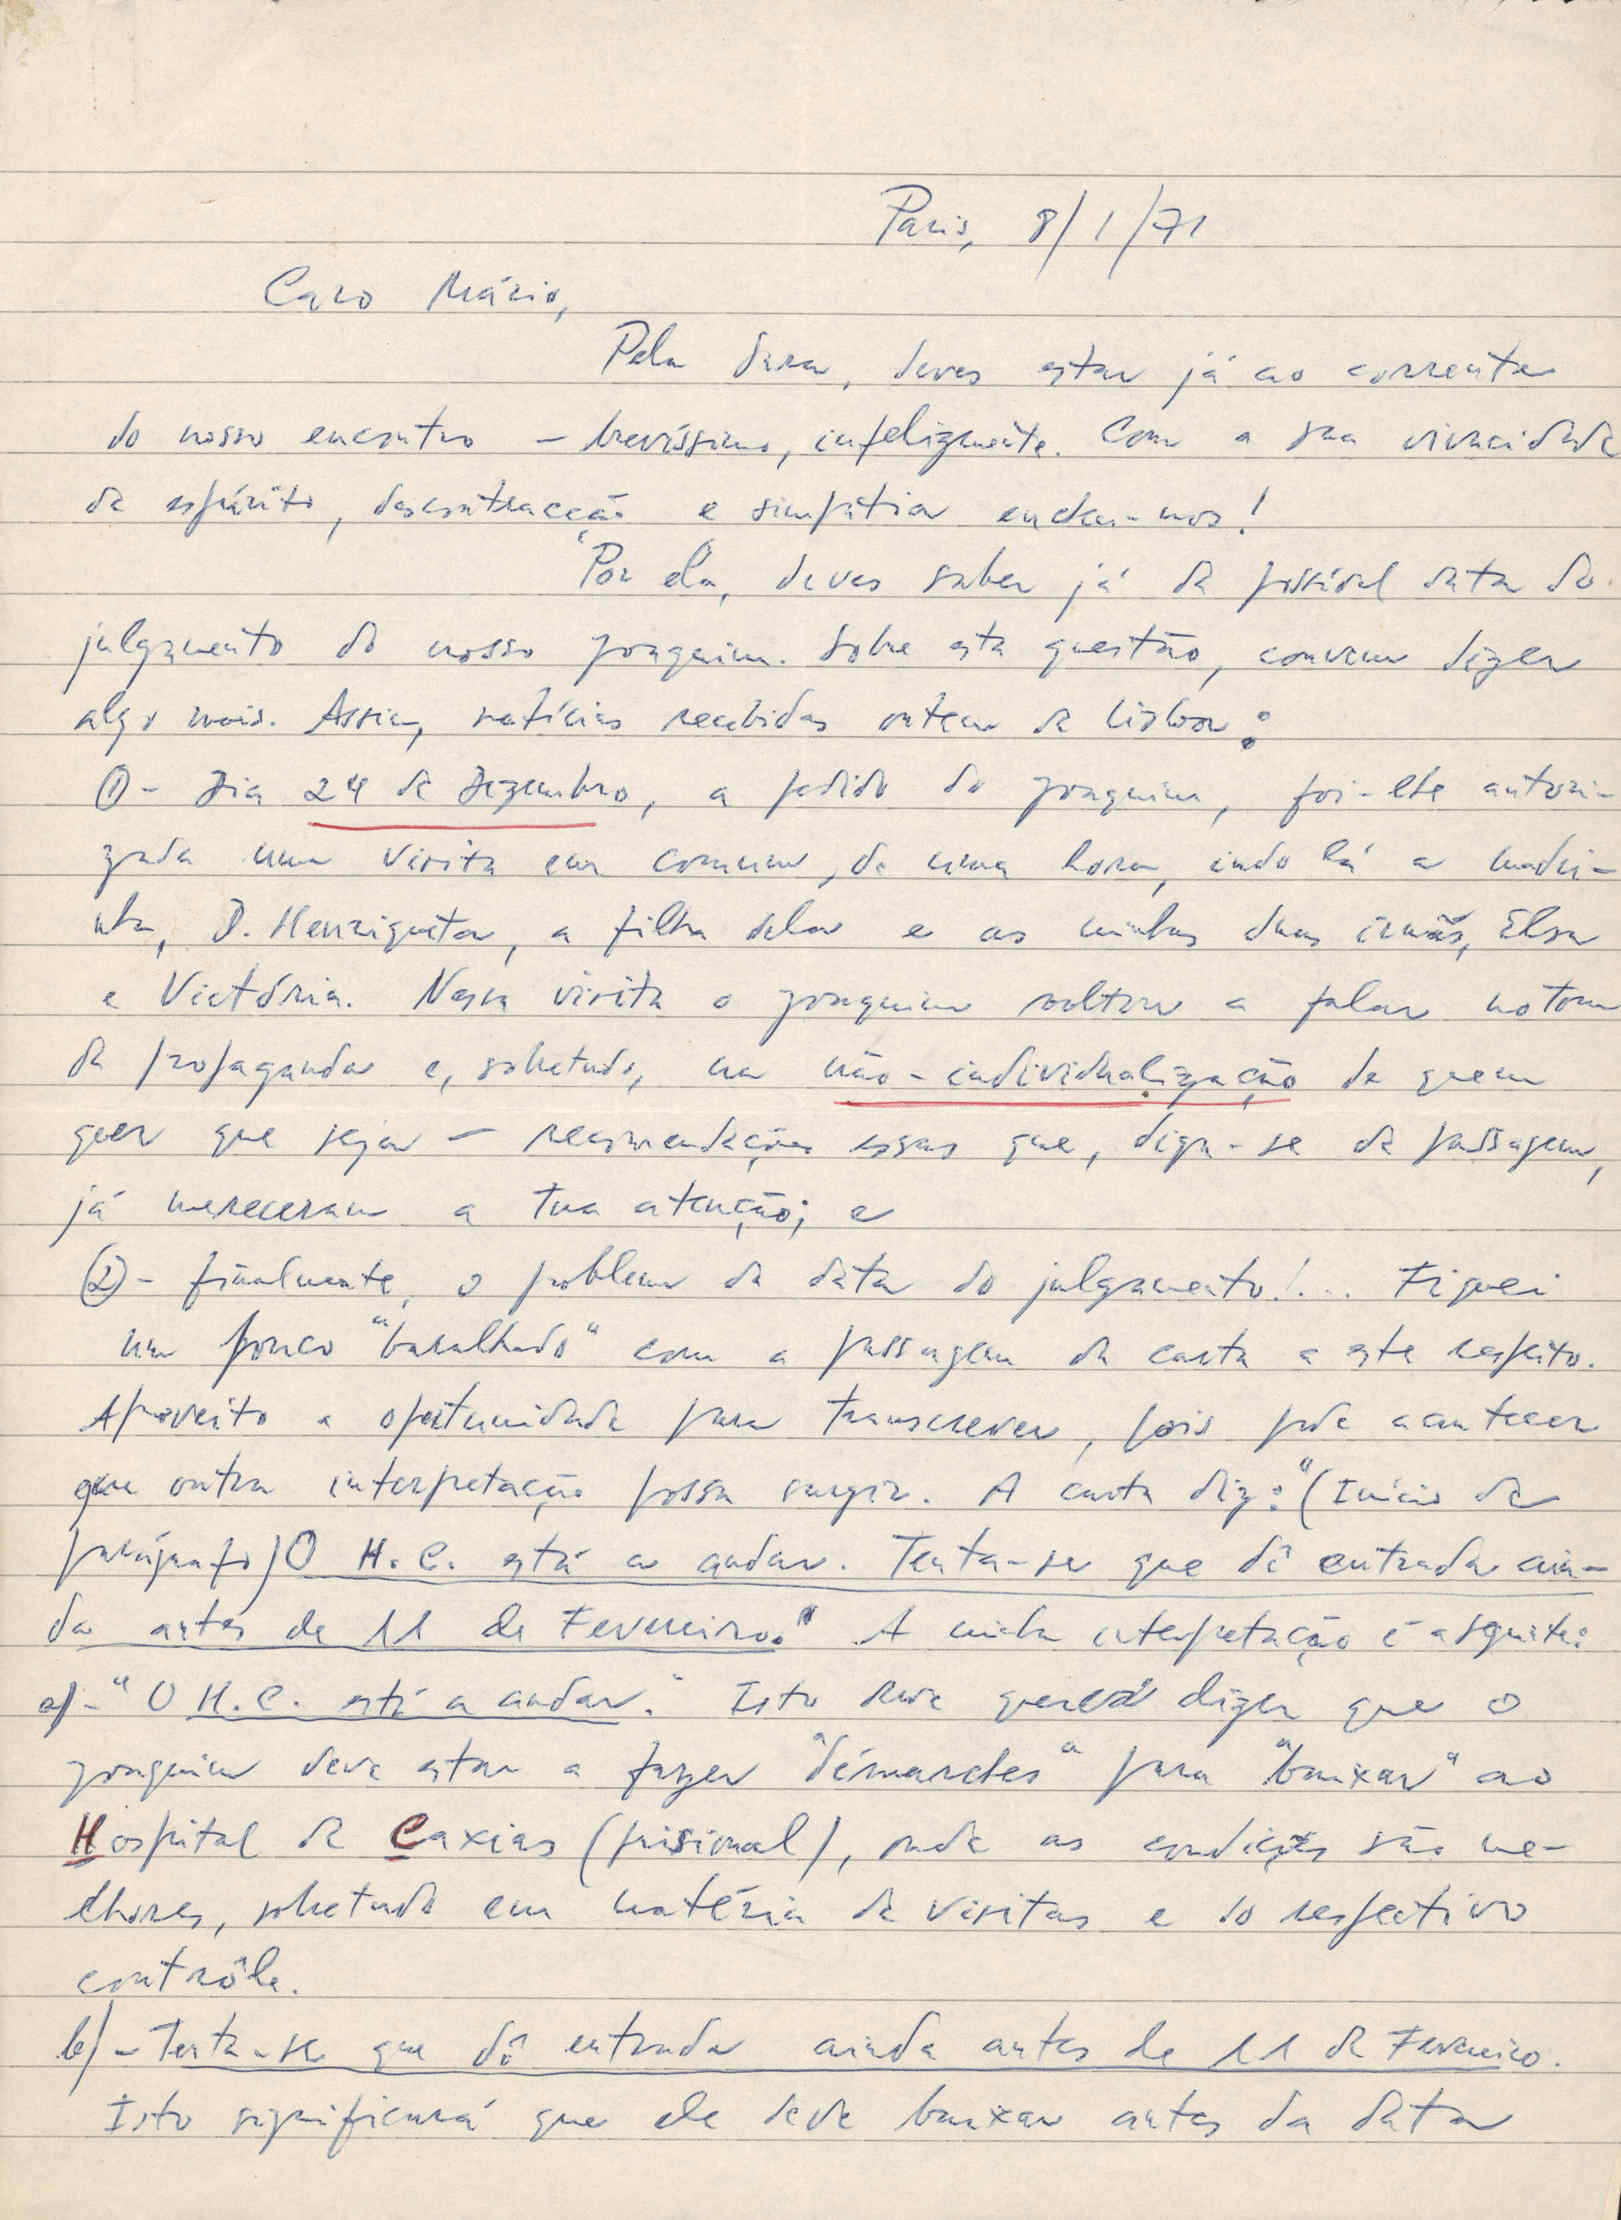 Paris, 8/1/71
Caro Mário,
Pela Sara, deves estar já ao corrente
do nosso encontro - brevíssimo, infelizmente. Com a sua vivacidade
de espírito, descontracção e simpatia encheu-nos!
Por ela, deves saber já da possível data do
julgamento do nosso Joaquim. Sobre esta questão, convem dizer
algo mais. Assim, notícias recebidas ontem de Lisboa:
① - Dia 24 de Dezembro, a pedido do Joaquim, foi-lhe autori-
zada uma visita em comum, de uma hora, indo lá a madri-
nha, D. Henriqueta, a filha dela e as minhas duas irmãs, Elsa
e Victória. Nessa visita o Joaquim voltou a falar no tom
da propaganda e, sobretudo, na não-individualização de quem
quer que seja - recomendações essas que, diga-se de passagem,
já mereceram a tua atenção; e
② - finalmente, o problema da data do julgamento!... Fiquei
um pouco "baralhado" com a passagem da carta a este respeito.
Aproveito a oportunidade para transcrever, pois pode acontecer
que outra interpretação possa surgir. A carta diz: "(Início de
parágrafo) O H.C. está a andar. Tenta-se que dê entrada ain-
da antes de 11 de Fevereiro." A minha interpretação é a seguinte:
a) - "O H.C. está a andar." Isto deve querer dizer que o
Joaquim deve estar a fazer "démarches" para "baixar" ao
Hospital de Caxias (prisional), onde as condições são me-
lhores, sobretudo em matéria de visitas e do respectivo
contrôle.
b) - Tenta-se que dê entrada ainda antes de 11 de Fevereiro.
Isto significará que ele deve baixar antes da data